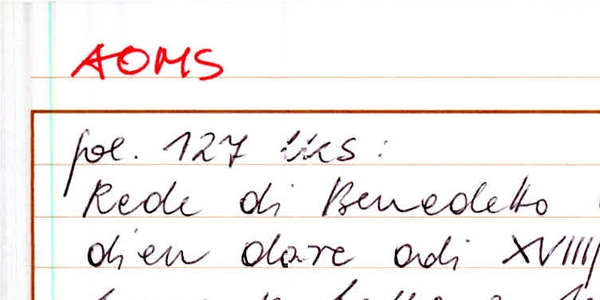 AOMS
fol. 127 sks:
Rede di Benedetto
dien dare adi XVIIII